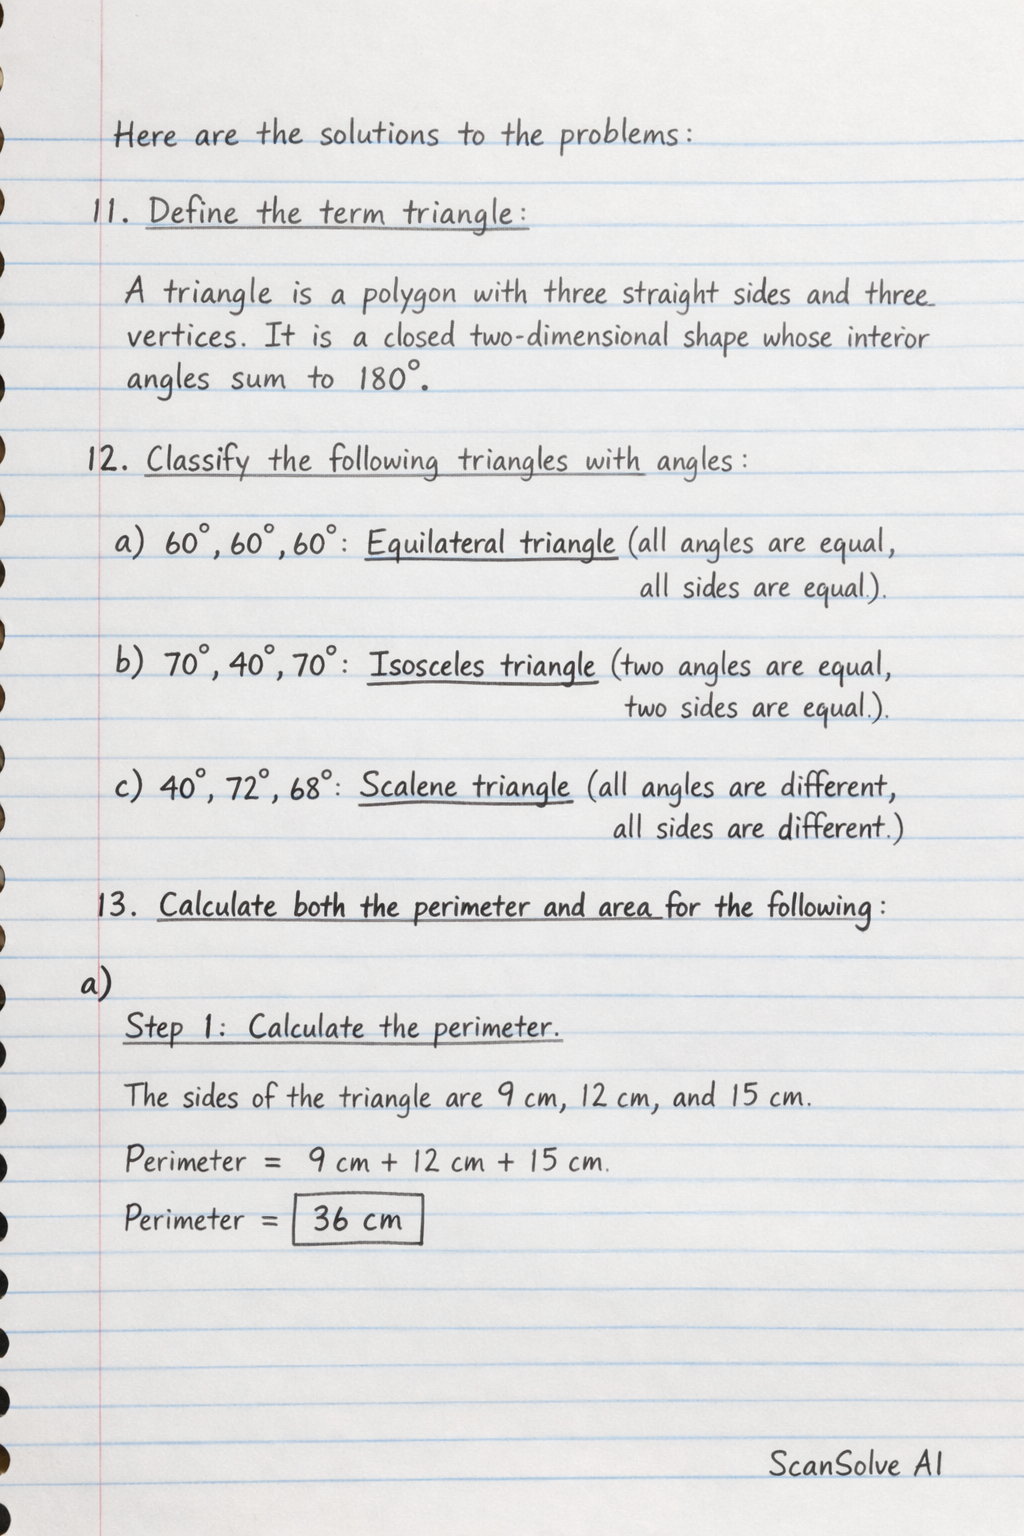 Here are the solutions to the problems:
11. Define the term triangle:
A triangle is a polygon with three straight sides and three
vertices. It is a closed two-dimensional shape whose interior
angles sum to 180°.
12. Classify the following triangles with angles:
a) 60°, 60°, 60°: Equilateral triangle (all angles are equal,
all sides are equal.).
b) 70°, 40°, 70°: Isosceles triangle (two angles are equal,
two sides are equal.).
c) 40°, 72°, 68°: Scalene triangle (all angles are different,
all sides are different.)
13. Calculate both the perimeter and area for the following:
a)
Step 1: Calculate the perimeter.
The sides of the triangle are 9 cm, 12 cm, and 15 cm.
Perimeter = 9 cm + 12 cm + 15 cm.
Perimeter = 36 cm
ScanSolve AI